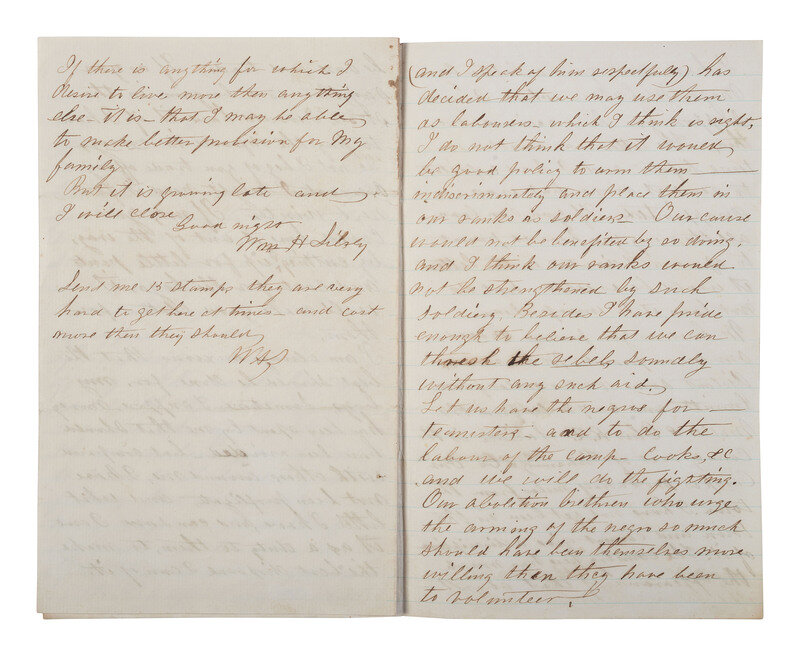 If there is anything for which I
desire to live more then anything
else - it is - that I may be able
to make better provision for My
family
But it is growing late and
I will close
Good night
Wm H Silvey
Send me 15 stamps they are very
hard to get here at times - and cost
more then they should
WHS
(and I speak of him respectfuly) has
decided that we may use them
as labourers - which I think is right,
I do not think that it would
be good policy to arm them
indiscriminately and place them in
our ranks as soldiers. Our cause
would not be benefited by so doing,
and I think our ranks would
not be strengthened by such
soldiers, Besides I have pride
enough to believe that we can
thresh the rebels soundly
without any such aid,
Let us have the negros for
teamsters - and to do the
labour of the camp - cooks, &c
and we will do the fighting.
Our abolition brethren who urge
the arming of the negro so much
should have been themselves more
willing then they have been
to volunteer.